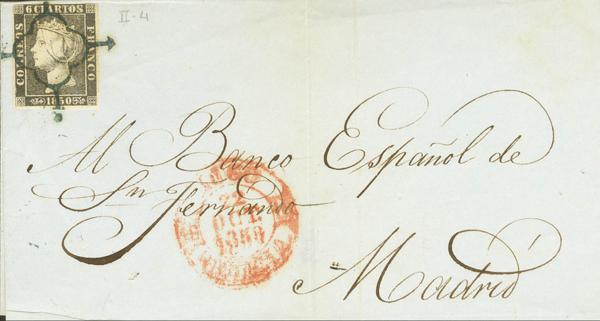 II-4
6 CUARTOS
CORREOS
FRANCO
1850
Al Banco Español de
Sn Fernando
Madrid